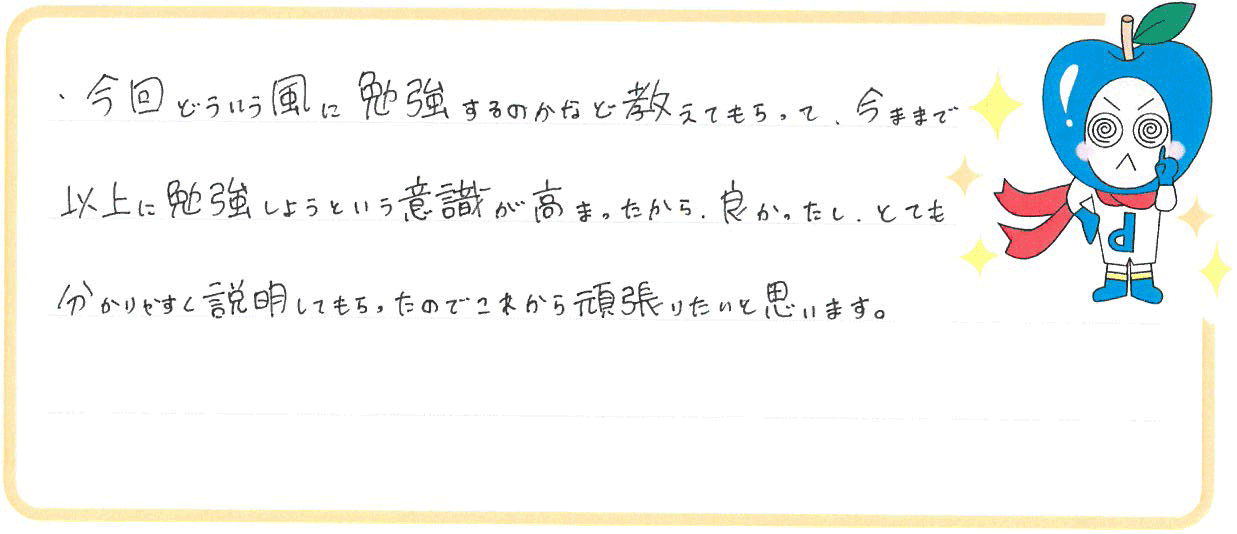 ・今回どういう風に勉強するのかなど教えてもらって、今ままで
以上に勉強しようという意識が高まったから、良かったし、とても
分かりやすく説明してもらったのでこれから頑張りたいと思います。
d